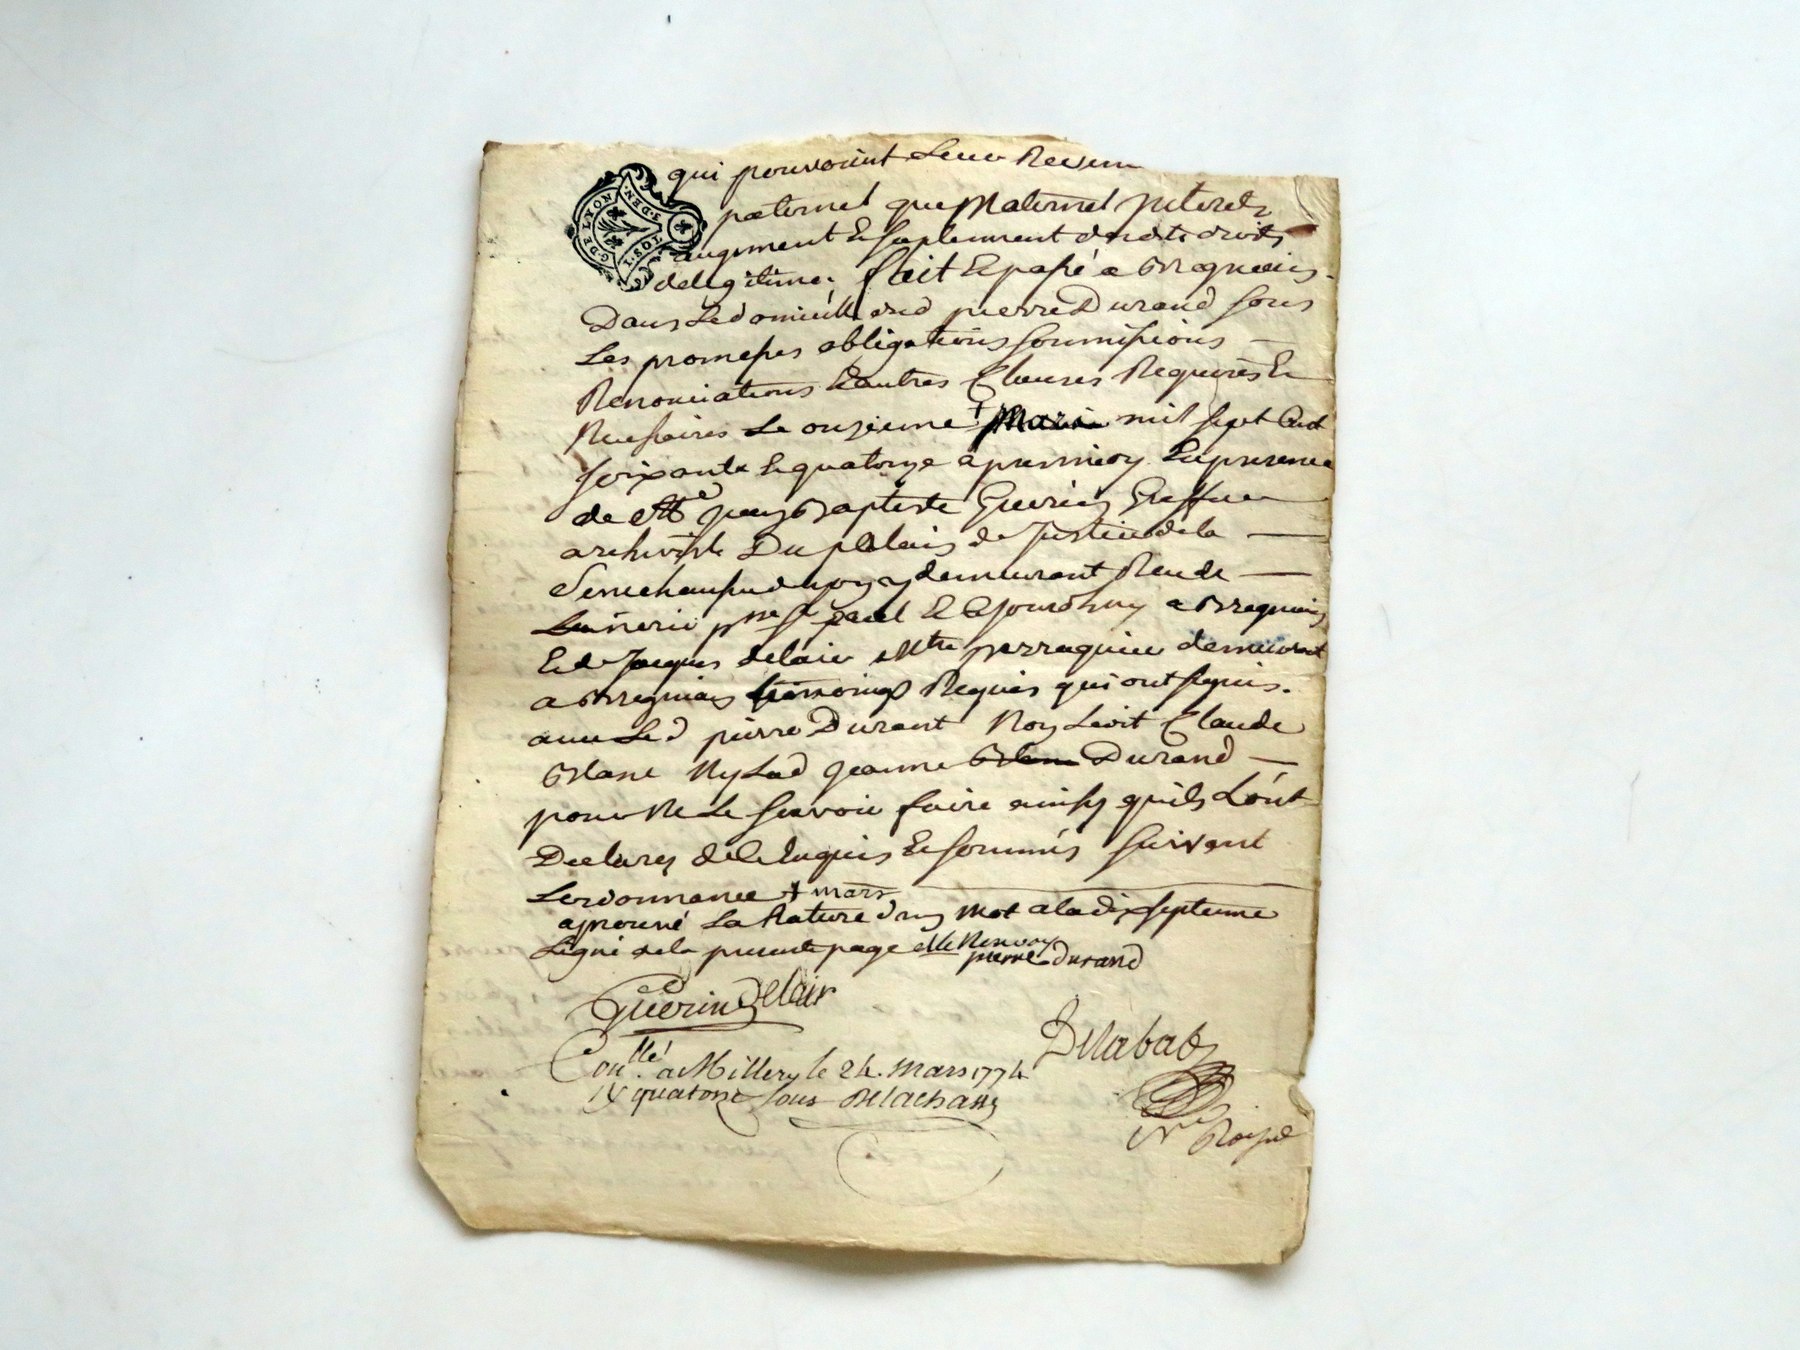 G. DE LYON
1. SOL. 8. DEN.
qui pouvoient Leur Revenir
paternel que Maternel Interets
augement & suplement desdts droits
de legitime. fait & passé a Bregnais
Dans Le domicille dud pierre Durand sous
Les promesses obligations soumissions
Renonciations & autres Clauses Requises &
Necessaires Le onzieme + mil sept Cent
soixante & quatorze apresmidy En presence
de Mtre Jean Baptiste Guerin Greffier
archiviste Du palais de Justice de la
Senechaussée de Lyon y demeurant Rue de
psse st paul & Ce Jourdhuy a Bregnais
& de Jacques delair Mtre perraquier demeurant
a Bregnais temoings Requis qui ont signés.
avec Le d pierre Durant Non Ledit Claude
Blanc Ny Lad Jeanne Durand
pour Ne Le scavoir faire ainsy quils L'ont
Declarés de Ce Enquis & sommés suivant
Lordonnance + mars
aprouvé La Rature d'un mot a la dix septieme
Ligne de la presente page & le Renvoy
pierre durand
Guerin Delair
Delabat
Conllé a Millery le 24. mars 1774
R quatorze sous Delachass
Nre Royal